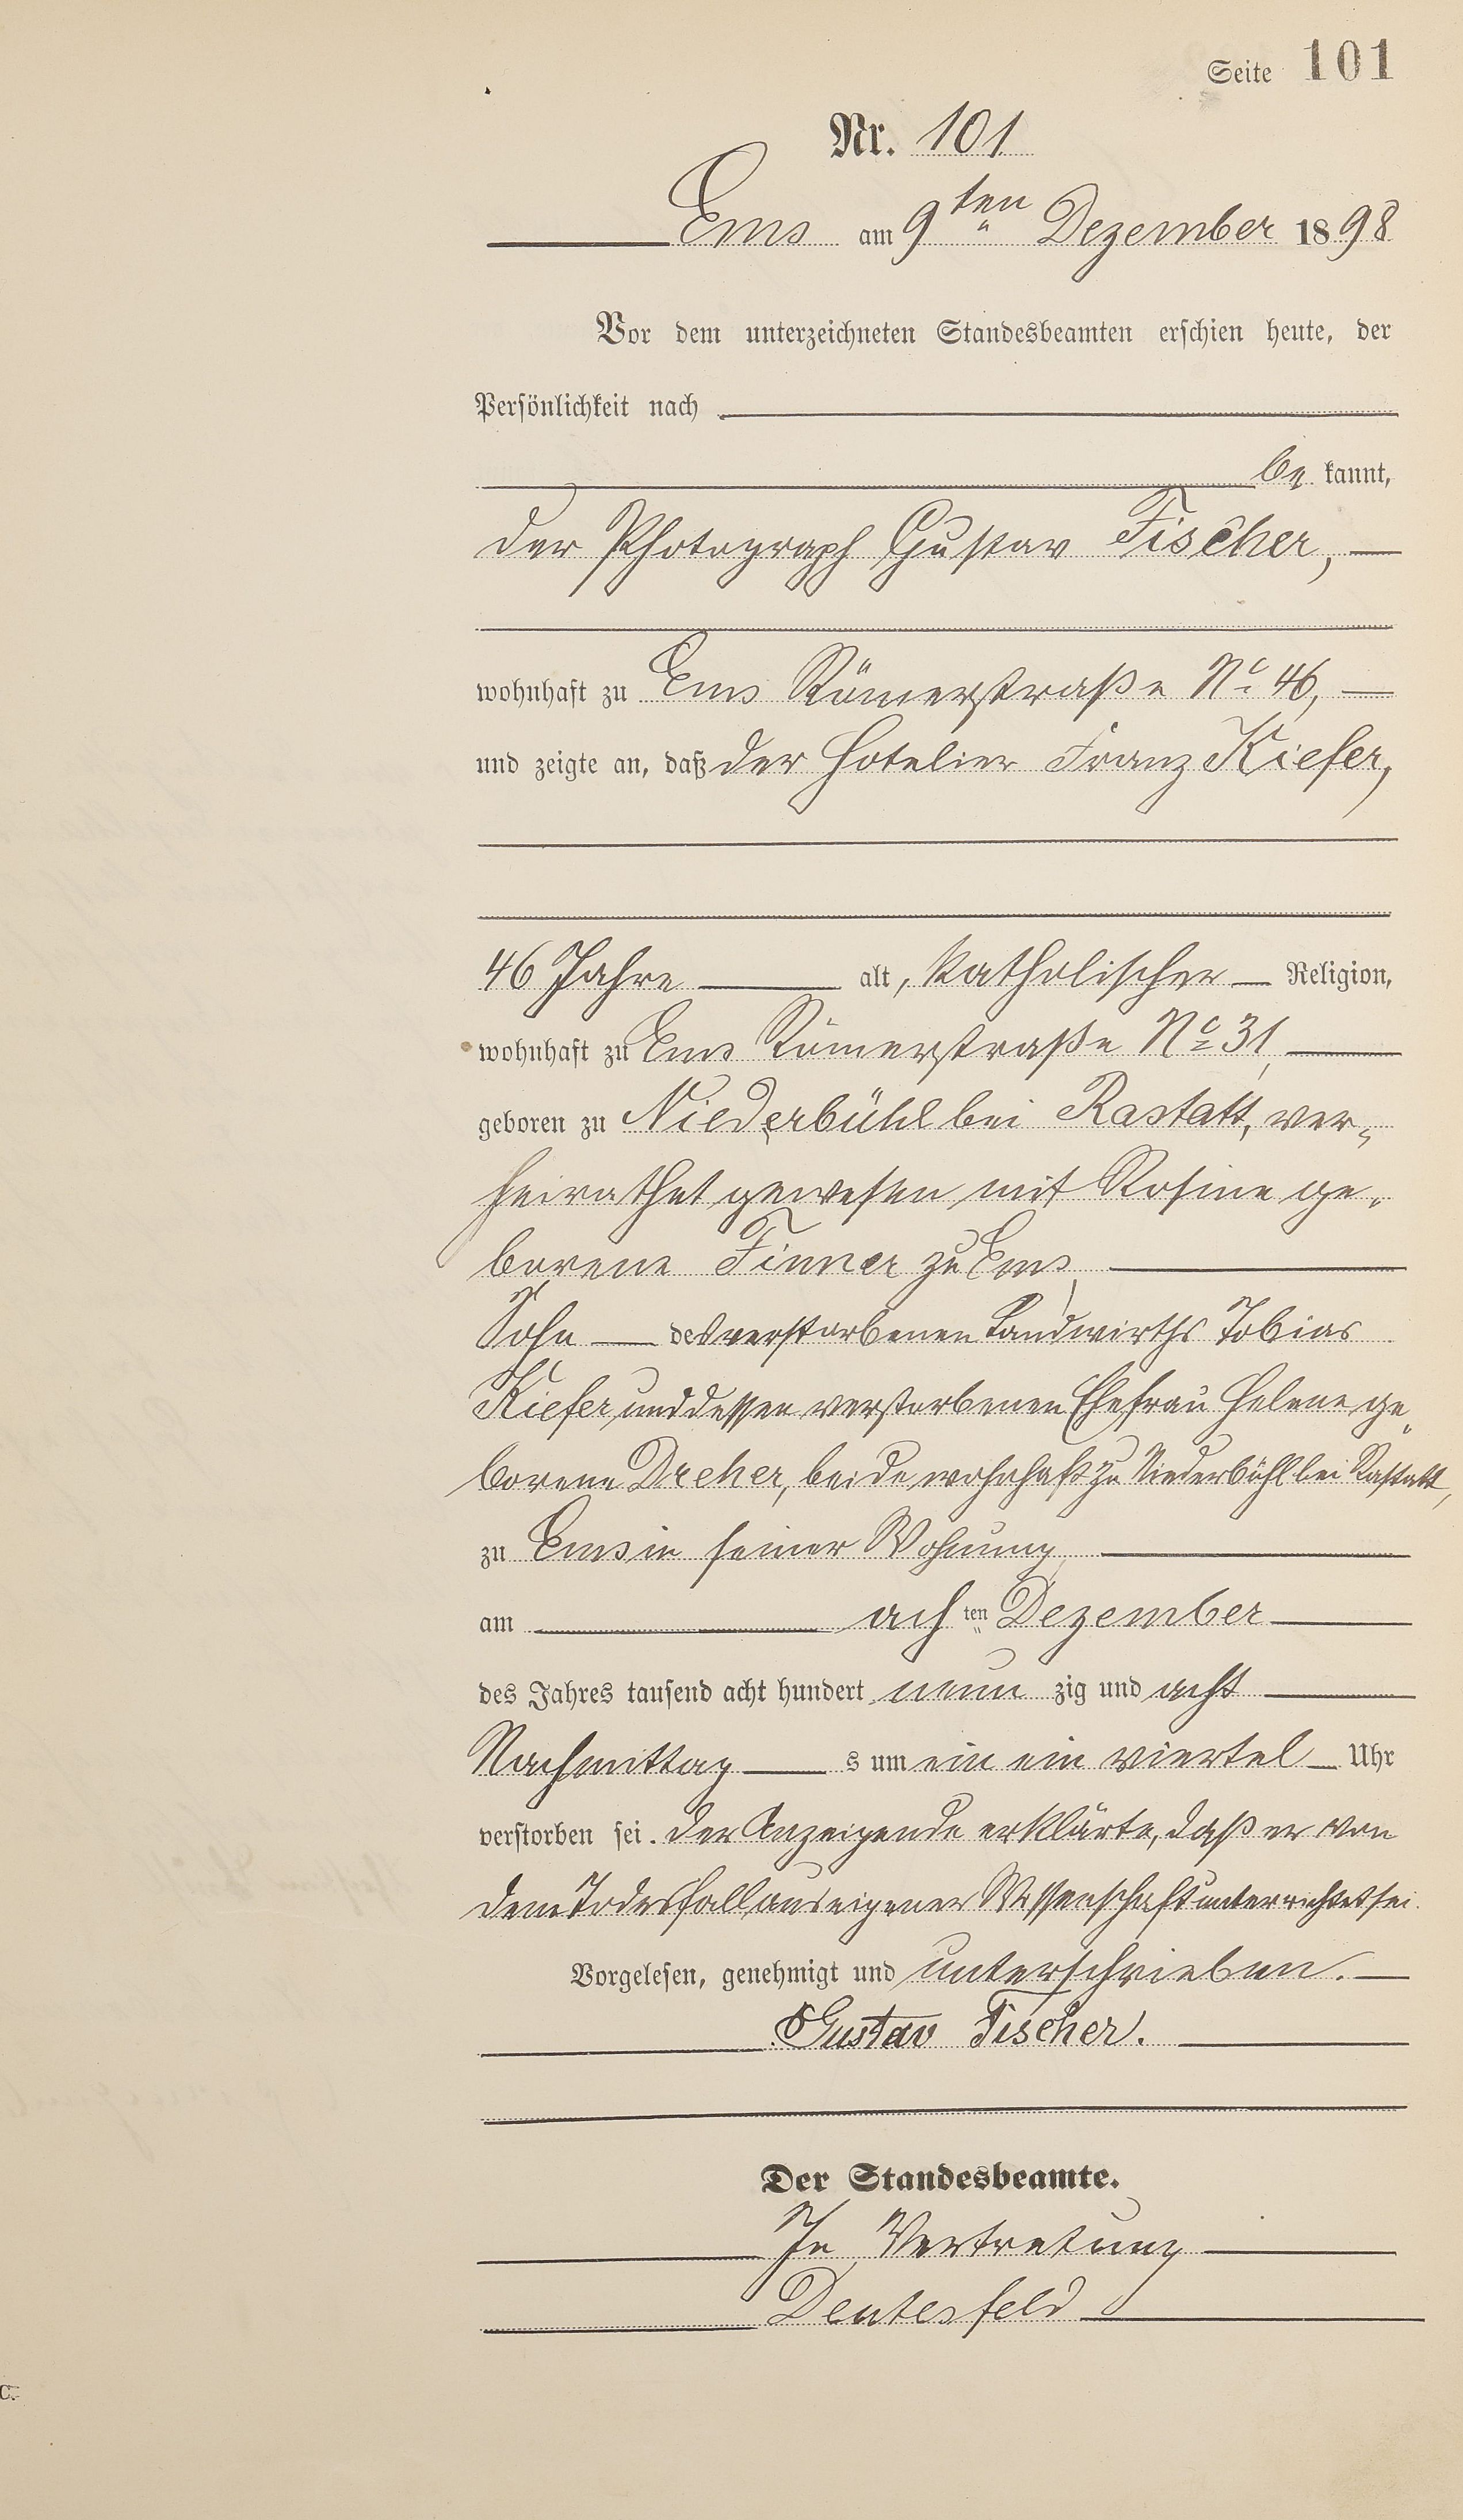 Seite 101
Nr. 101
Ems am 9ten Dezember 1898
Vor dem unterzeichneten Standesbeamten erschien heute, der
Persönlichkeit nach
be kannt,
der Photograph Gustav Fischer,
wohnhaft zu Ems Römerstraße No 46,
und zeigte an, daß der Hotelier Franz Kiefer,
46 Jahre alt, katholischer Religion,
wohnhaft zu Ems Römerstraße No 31,
geboren zu Niederbühl bei Rastatt, ver-
heirathet gewesen mit Rosine ge-
borene Finner zu Ems,
Sohn des verstorbenen Landwirths Tobias
Kiefer und dessen verstorbenen Ehefrau Helene ge-
borene Dreher, beide wohnhaft zu Niederbühl bei Rastatt,
zu Ems in seiner Wohnung,
am achten Dezember
des Jahres tausend acht hundert neun zig und acht
Nachmittags um ein ein viertel Uhr
verstorben sei. Der Anzeigende erklärte, daß er von
dem Todesfall aus eigener Wissenschaft unterrichtet sei.
Vorgelesen, genehmigt und unterschrieben.
Gustav Fischer.
Der Standesbeamte.
In Vertretung
Deutesfeld